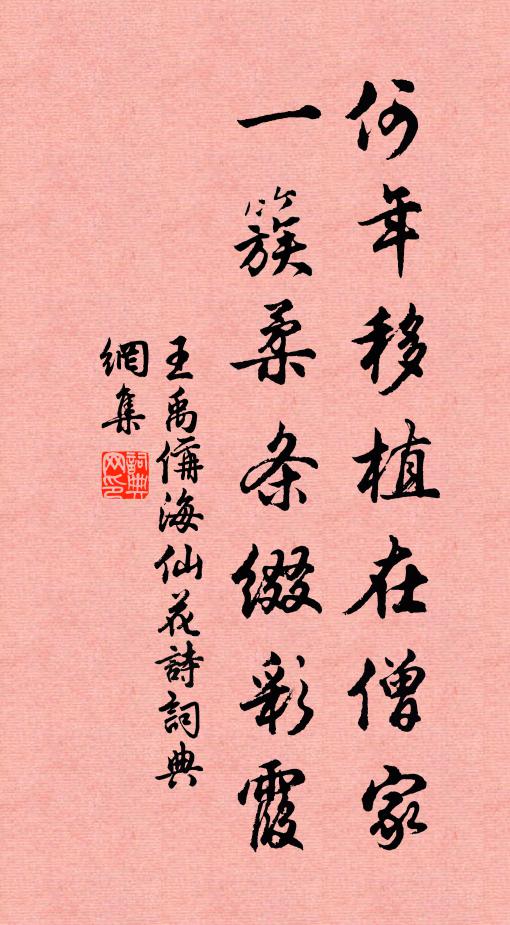 何年移植在僧家
一簇柔条缀彩霞
王禹偁海仙花詩詞典
網集
詞典
网印